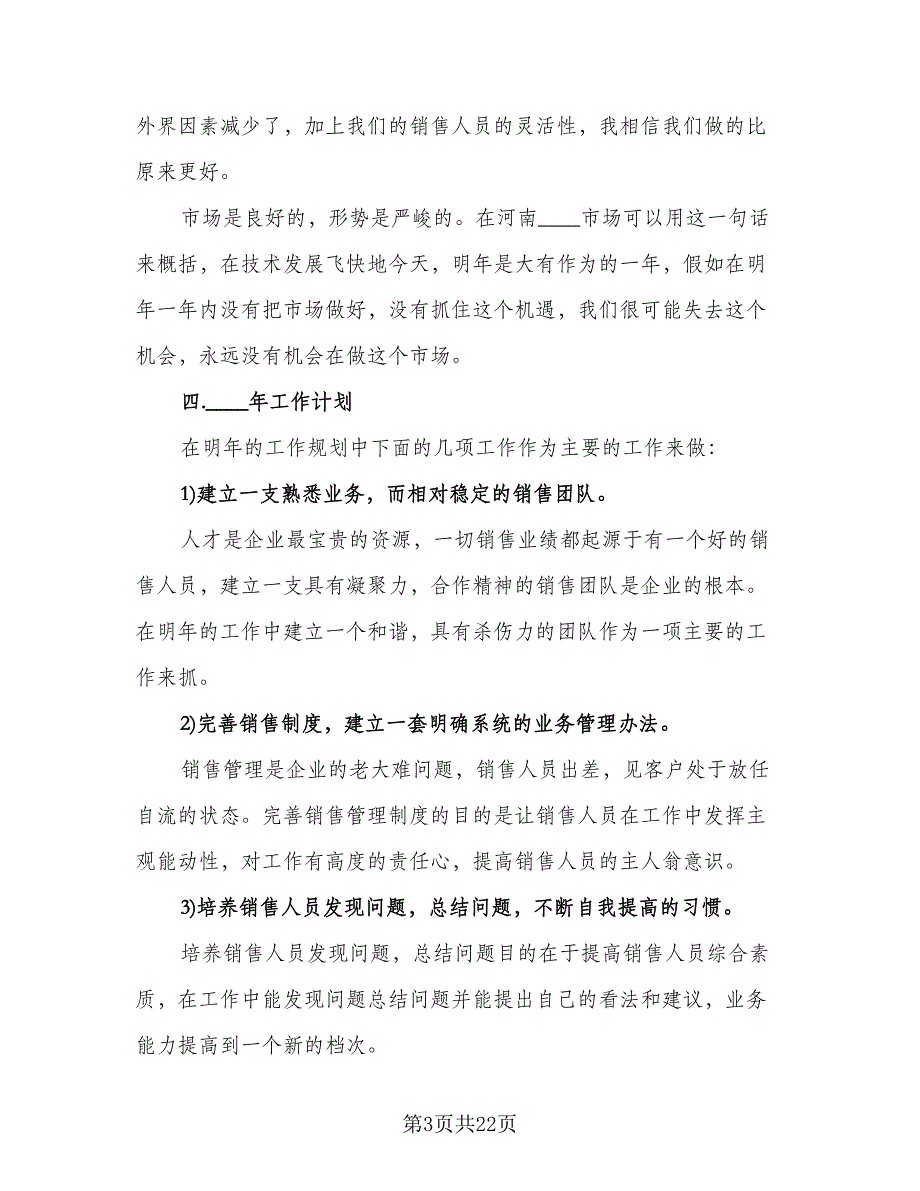 外界因素减少了，加上我们的销售人员的灵活性，我相信我们做的比
原来更好。
市场是良好的，形势是严峻的。在河南____市场可以用这一句话
来概括，在技术发展飞快地今天，明年是大有作为的一年，假如在明
年一年内没有把市场做好，没有抓住这个机遇，我们很可能失去这个
机会，永远没有机会在做这个市场。
四.____年工作计划
在明年的工作规划中下面的几项工作作为主要的工作来做：
1)建立一支熟悉业务，而相对稳定的销售团队。
人才是企业最宝贵的资源，一切销售业绩都起源于有一个好的销
售人员，建立一支具有凝聚力，合作精神的销售团队是企业的根本。
在明年的工作中建立一个和谐，具有杀伤力的团队作为一项主要的工
作来抓。
2)完善销售制度，建立一套明确系统的业务管理办法。
销售管理是企业的老大难问题，销售人员出差，见客户处于放任
自流的状态。完善销售管理制度的目的是让销售人员在工作中发挥主
观能动性，对工作有高度的责任心，提高销售人员的主人翁意识。
3)培养销售人员发现问题，总结问题，不断自我提高的习惯。
培养销售人员发现问题，总结问题目的在于提高销售人员综合素
质，在工作中能发现问题总结问题并能提出自己的看法和建议，业务
能力提高到一个新的档次。
第3页共22页